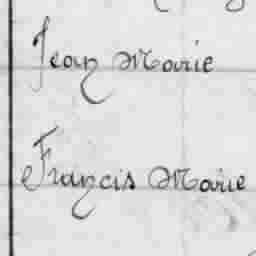 Jean Marie
Francis Marie